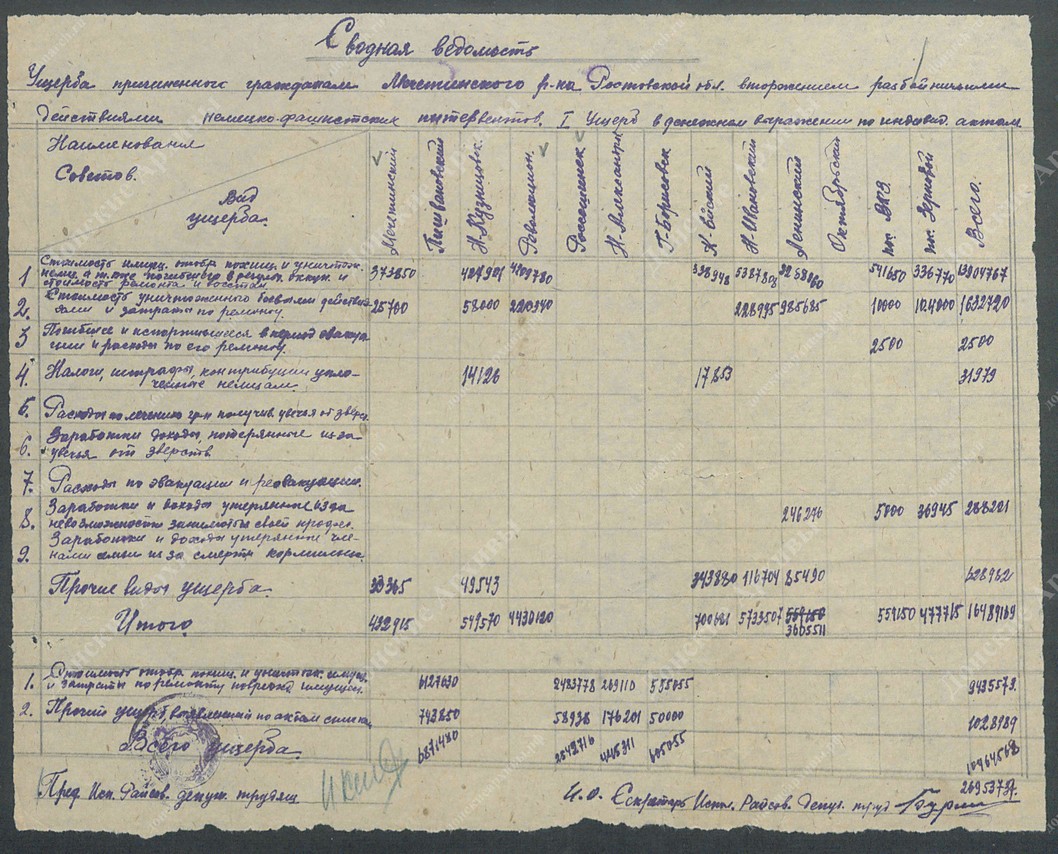 Сводная ведомость
Ущерба причиненног гражданам Мечетинского р-на Ростовской обл. вторжением разбойничьими
действиями немецко-фашистских интервентов. I Ущерб в денежном выражении по индивид. актам
Наименования
Советов.
Вид
ущерба.
Мечетинский
Н.Кузнецовск.
Революцион.
Россошинск
Н.Александров
Г-Борисовск
Н.Ивановский
Ленинский
Октябрьский
пос. Зерновой
Всего.
1 Стоимость имущ. отобр. похищ. и уничтож.
нем. а также погибшего в период оккуп. и
стоимость ремонта и восстан.
373850 4209780 338948 5387808 541650 336770 13804767
2. Стоимость уничтоженного боевыми действи
ями и затраты по ремонту.
25700 58000 220340 228995 985685 10000 104000 1632720
3 Погибшее и испортившееся в период эвакуа
ции и расходы по его ремонту.
2500 2500
4. Налоги, штрафы, контрибуции упло-
ченные немцам
14126 17853 31979
5. Расходы по лечению гр-н получив. увечья от зверст.
6. Заработки доходы, потерянные из за
увечья от зверств
7. Расходы по эвакуации и реэвакуации.
8. Заработки и доходы утерянные из за
невозможности заниматься своей професс.
246276 5000 36945 288221
9. Заработки и доходы утерянные чле-
нами семьи из за смерти кормильца
Прочие виды ущерба.
33365 49543 343880 116704 85490 628982
Итого
432915 549570 4430120 700681 5733507 559150
3605511
559150 477715 16489169
1. Стоимость отобр. похищ. и уничтож. имущ.
и затраты по ремонту поврежд. имущест.
6127630 2483778 269110 555055 9435573.
2. Прочий ущерб выявленный по актам
743850 58938 176201 50000 1028989
Всего ущерба
6871480 2542716 445311 605055 10464562
26953731.
Пред. Исп. Райсов. депут. трудящ
И.О. Секретарь Испол. Райсов. Депут. труд